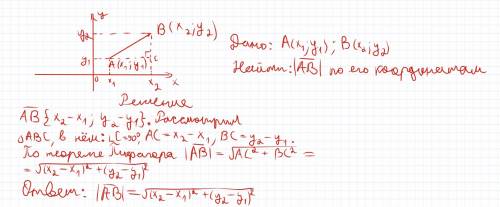 y
y₂
B(x₂;y₂)
y₁
A(x₁;y₁)
C
0
x₁
x₂
x
Дано: A(x₁;y₁); B(x₂;y₂)
Найти: |AB| по его координатам
Решение
AB{x₂-x₁; y₂-y₁}. Рассмотрим
△ABC, в нём: ∠C=90°, AC=x₂-x₁, BC=y₂-y₁.
По теореме Пифагора |AB|=√AC²+BC² =
=√(x₂-x₁)²+(y₂-y₁)²
Ответ: |AB|=√(x₂-x₁)²+(y₂-y₁)²